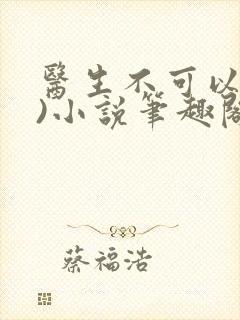 醫生不可以
)小說筆趣閣
蔡福浩